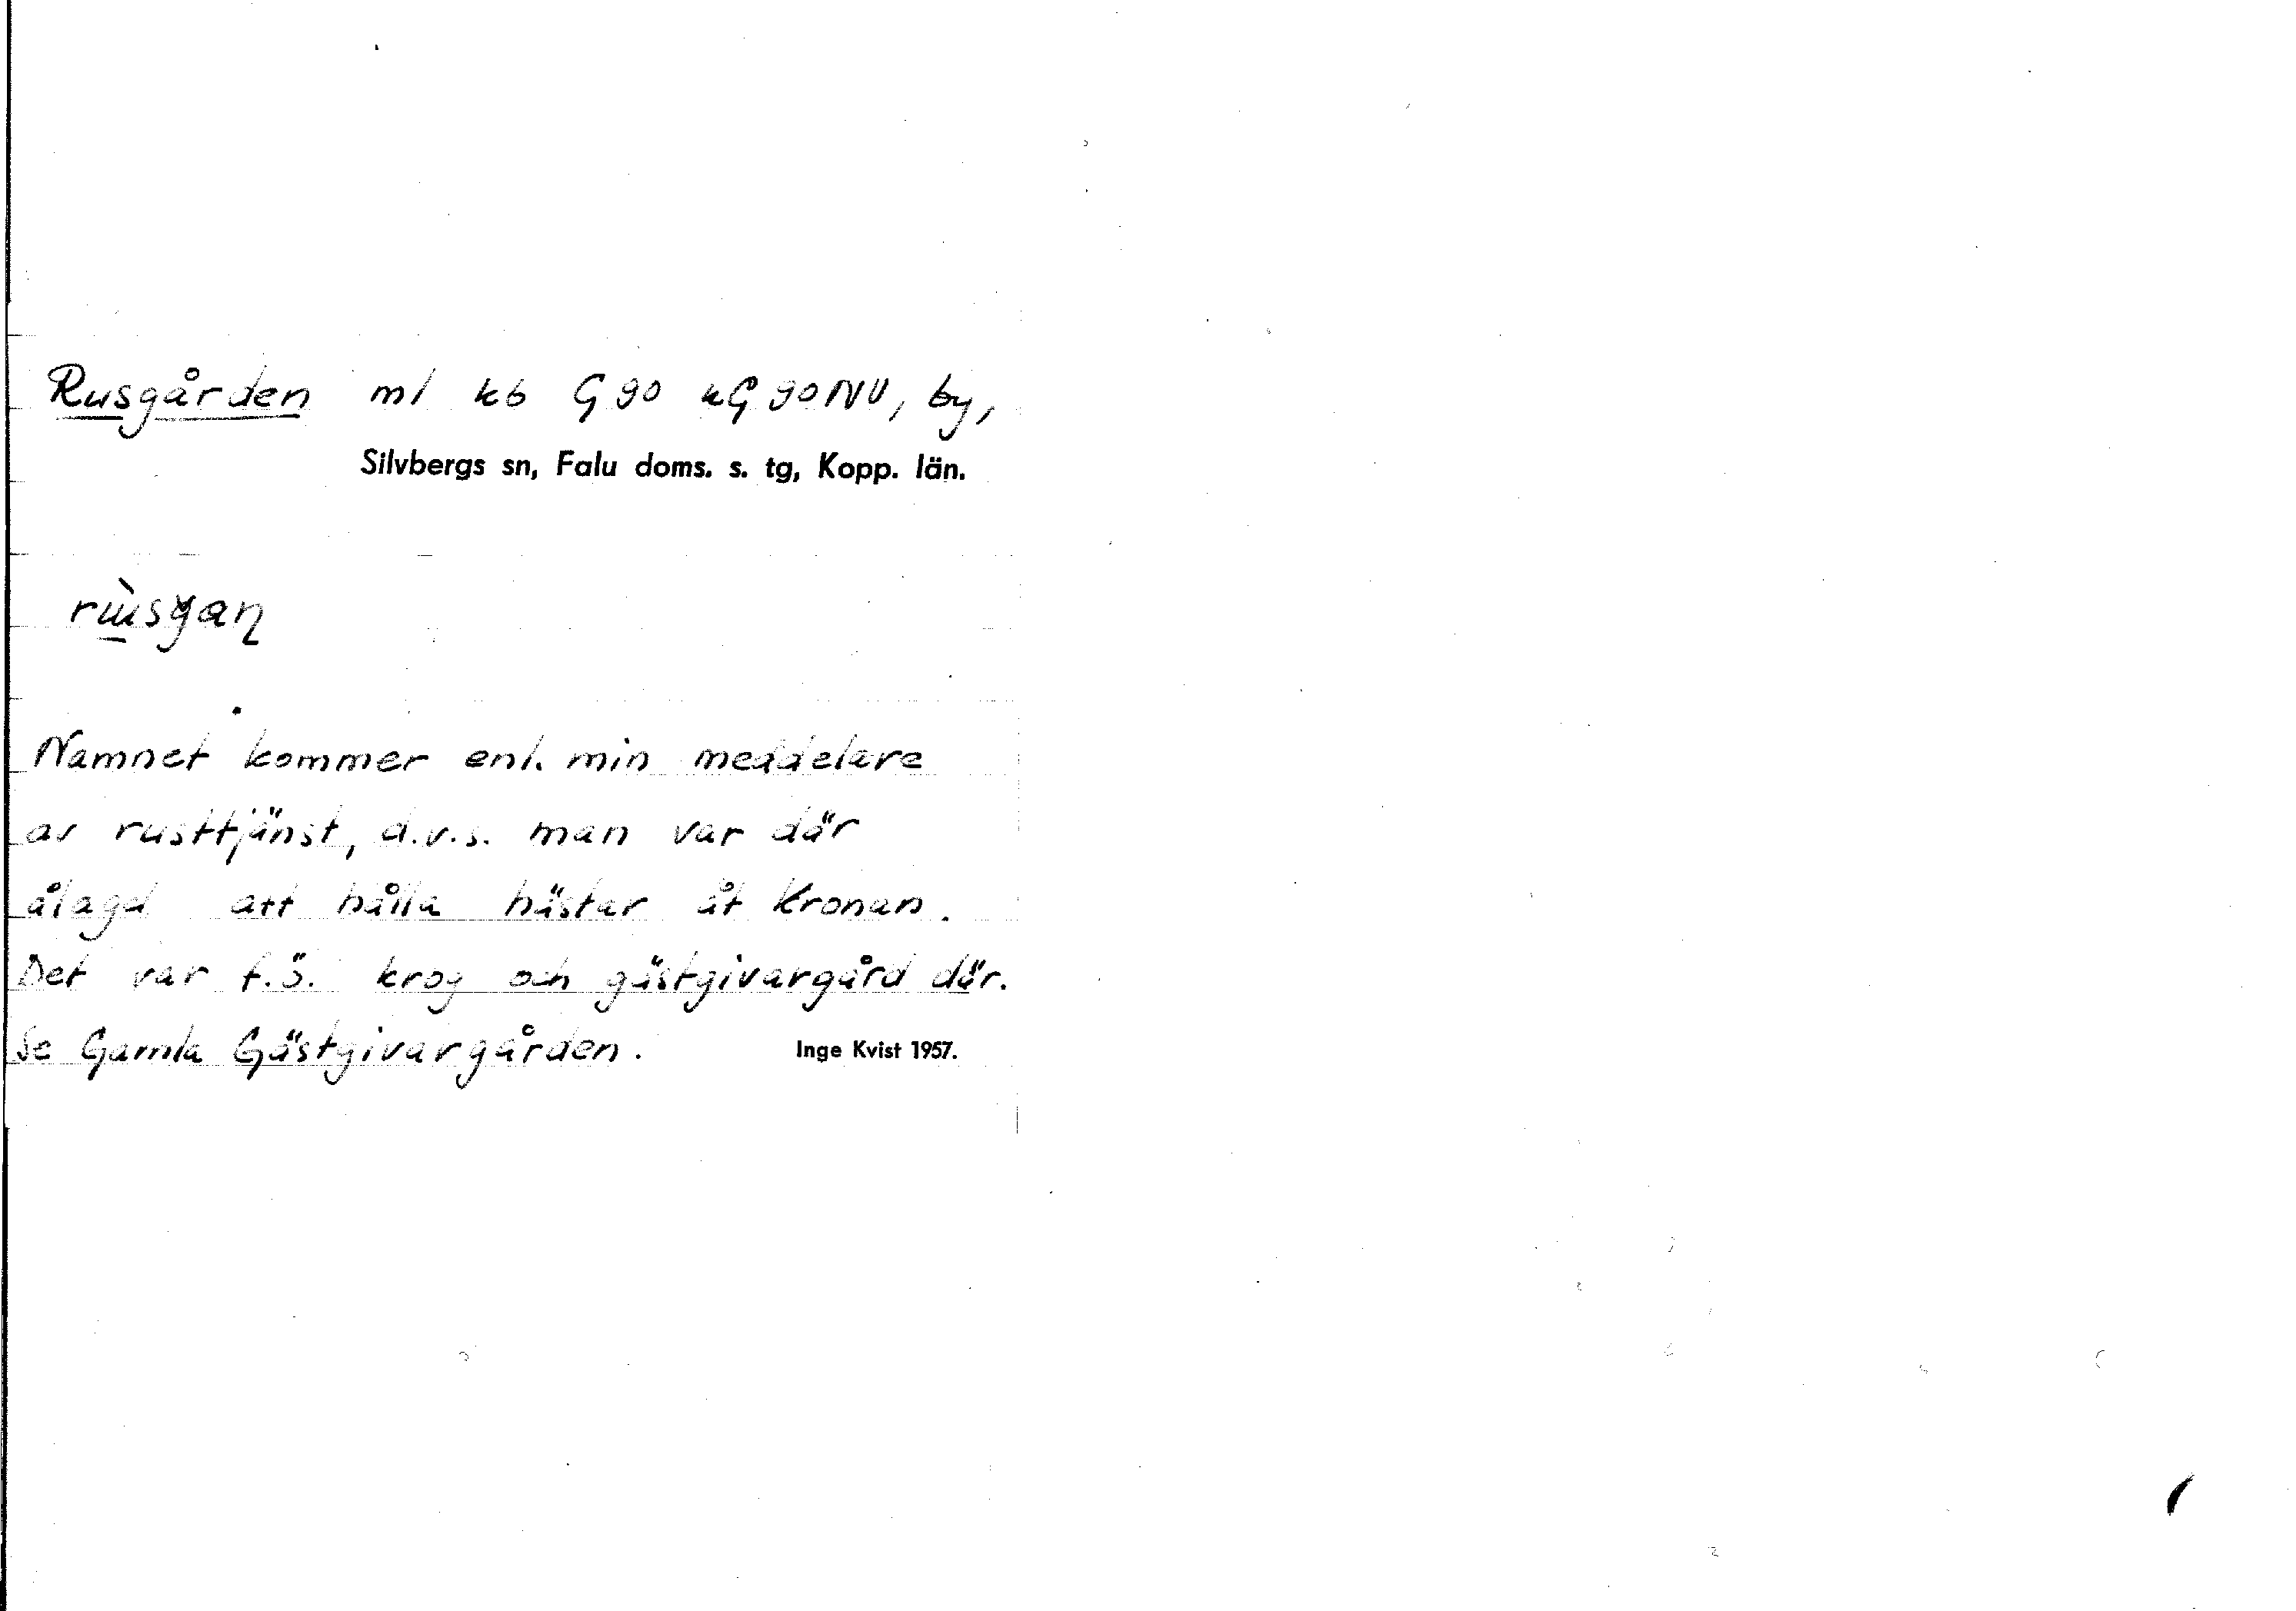 Rusgården ml kb G 90 kG 90 NV, by,
Silvbergs sn, Falu doms. s. tg, Kopp. län.
Namnet kommer enl. min meddelare
av rusttjänst, d.v.s. man var där
ålagd att hålla hästar åt Kronan.
Det var f.ö. krog och gästgivargård där.
Se Gamla Gästgivargården. Inge Kvist 1957.